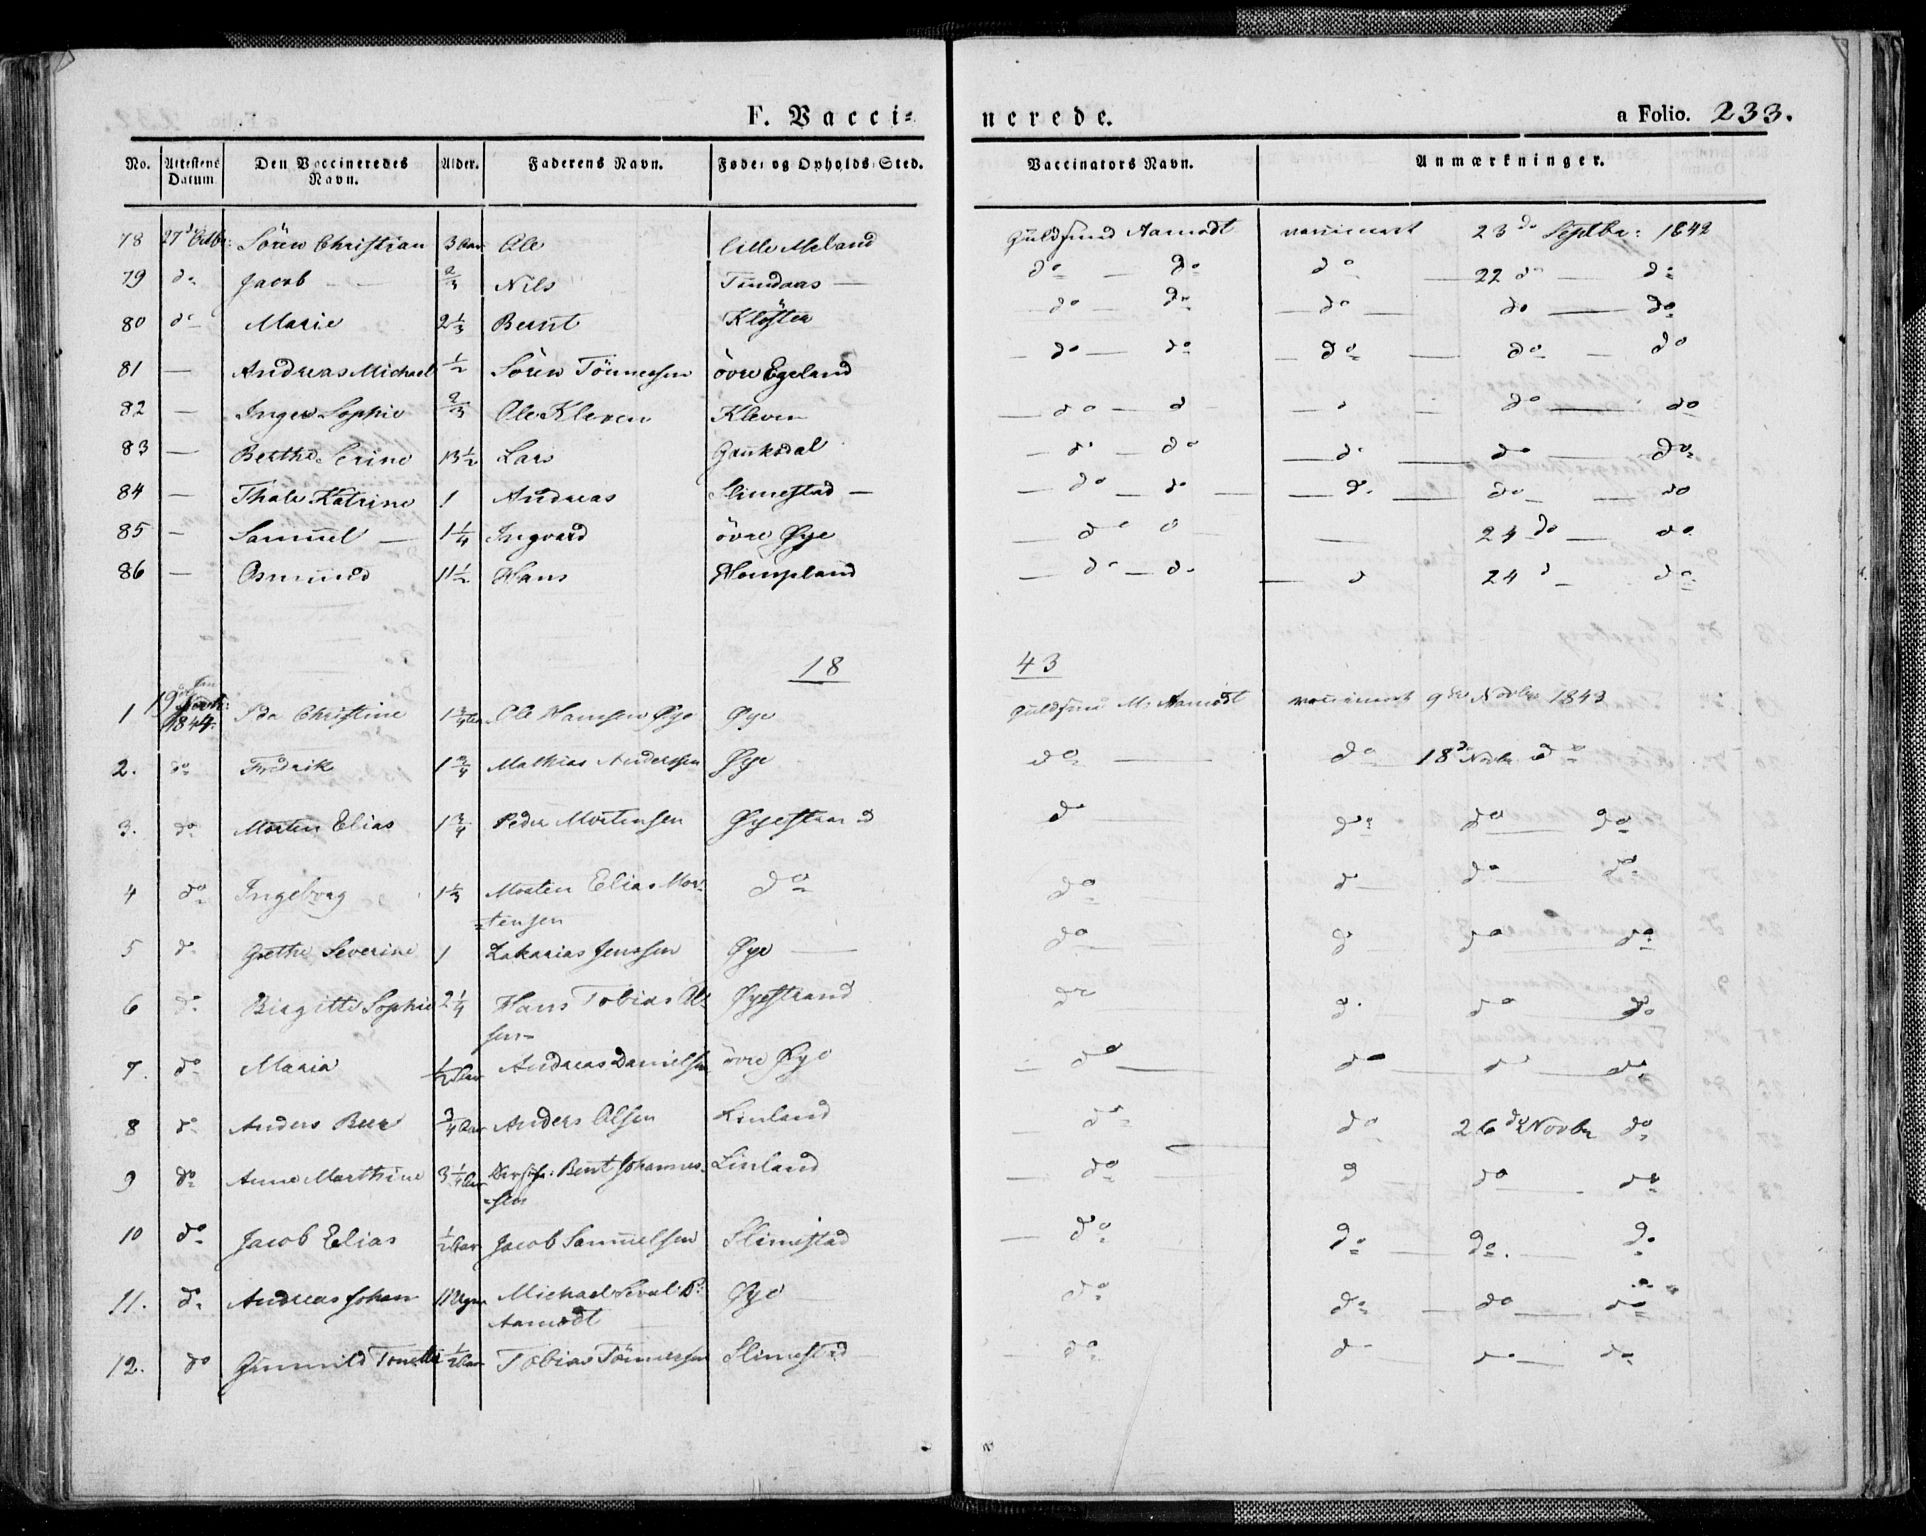 F. Vacci-
nerede.
a Folio. 233.
No. Attestens Datum Den Vaccineredes Navn. Alder. Faderens Navn. Føde- og Opholds-Sted. Vaccinators Navn. Anmærkninger.
78 27d Octbr: Sören Christian 3 Aar Ole Lille Meland Guldsmed Aamodt vaccineret 23de Septbr: 1842
79 do Jacob — 2/3 Nils Tundaas — do — do do — 22 do — do
80 do Marie 2 1/3 Bernt Kloster — do — do — do — do — do
81 — Andreas Michael 1/2 Sören Tönnessen övre Egeland — do — do — do — do — do
82 — Inger Sophie 2/3 Ole Kleven Kleven — do — d — d — do — do
83 — Berthe Serine 13 1/2 Lars Gauksdal — do — do — do — do — do
84 — Thale Katrine 1 Andreas Slimestad — — do — do — — do — do — do
85 — Samuel — 1 1/4 Ingvard övre Øye — do do — 24 do — do
86 — Osmund 11 1/2 Hans Hompland — do — do — d 24 d — do
18 43
1 19 Jan 1844. Ida Christine 1 3/4 Aar Ole Hansen Øye Øye M. Aamodt vaccineret 9de Novbr 1843
2. do Fredrik 1 3/4 Mathias Anderssen Øye do — do 18d Novbr do
3. do Morten Elias 1 3/4 Peder Mortensen Øyestrand do do do — do
4 do Ingeborg 1 1/3 Morten Elias Mor-
tensen do do do do — do
5 do Grethe Severine 1 Zakarias Jenssen Øye — do d do — do
6 do Birgitte Sophie 2 1/4 Hans Tobias Ol-
sen Øyestrand do d. do do
7. do Maria 1/2 Aar Andreas Danielsen övre Øye — do — do — do — do
8 do Anders Beer 3/4 Aar Anders Olsen Linland — do do 26de Novbr do
9 do Anne Marthine 3 1/4 Aar Bernt Johannes-
sen Linland — do d do — do
10 do Jacob Elias 1/2 Aar Jacob Samuelsen Slimestad — do do — do. — do
11. do Andreas Johan 11 Ugr Michael
Aamodt Øye — do do — do — do
12. do Gunnild Tonette 1/2 Aar Tobias Tönnessen Slimestad — do do do — do